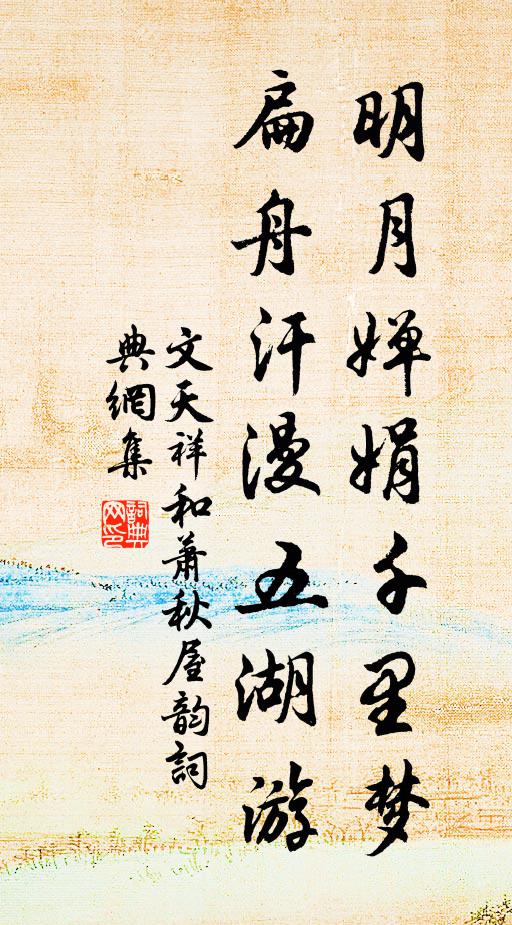 明月婵娟千里梦
扁舟汗漫五湖游
文天祥和萧秋屋韵詞
典網集
詞典
网印